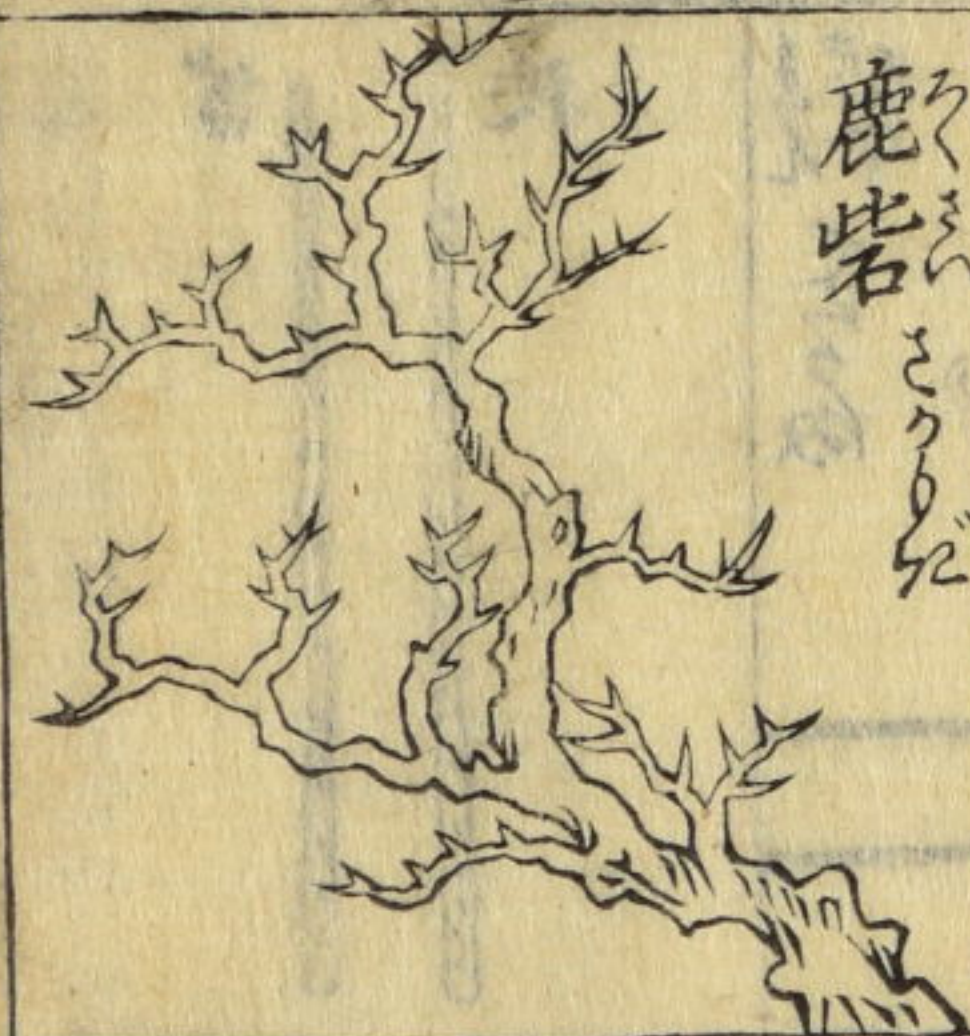 鹿砦
ろくさい
さかもぎ